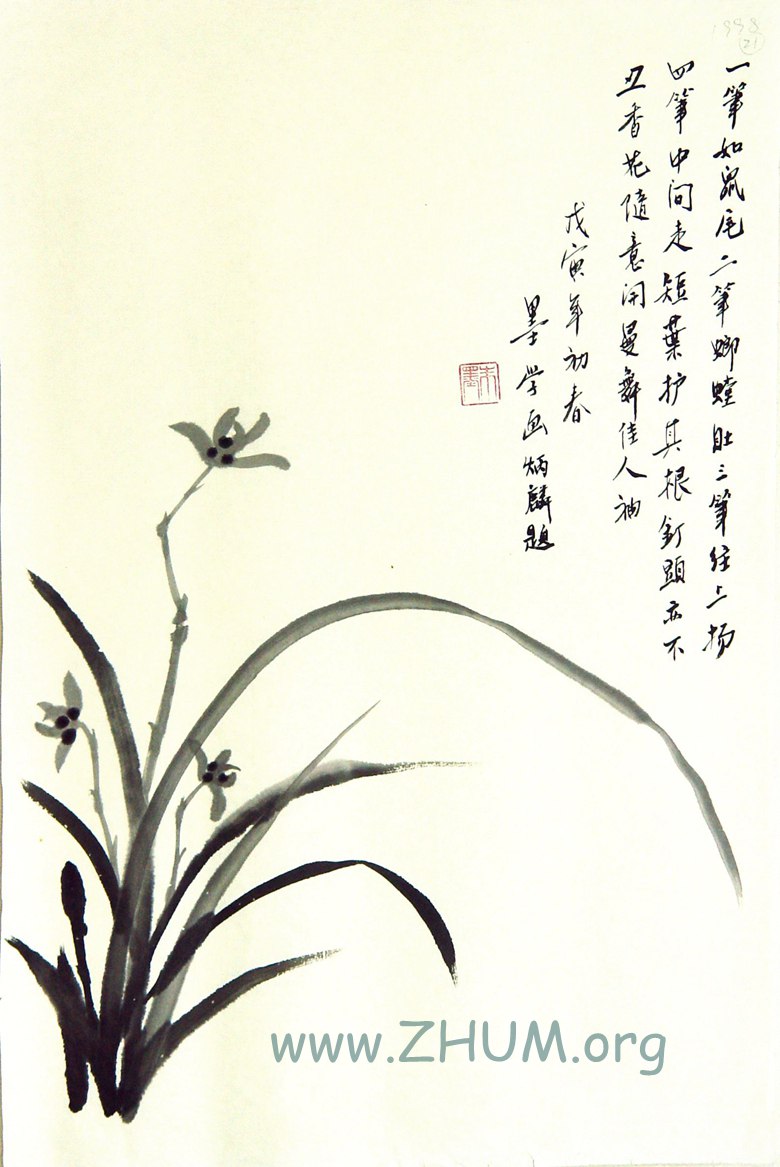 1998
21
一筆如鼠尾二筆螂螳肚三筆往上扬
四筆中间走短葉护其根釘頭亦不
丑香花隨意開曼舞佳人袖
戊寅年初春
墨学画炳麟題
朱墨
www.ZHUM.org